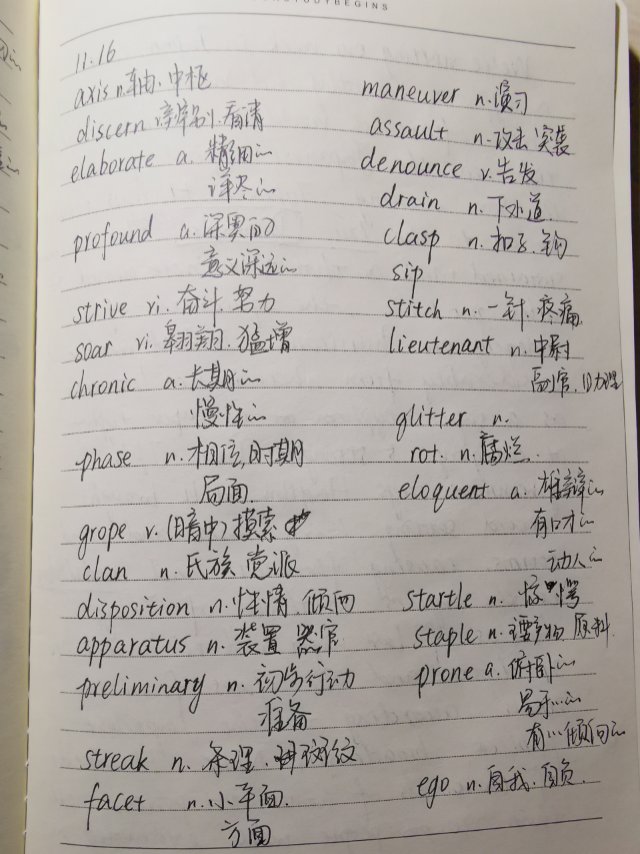 STUDYBEGINS
11.16
axis n.轴.中枢
discern 辨别.看清
elaborate a. 精细的
详尽的
profound a.深奥的
意义深远的
strive vi. 奋斗.努力
soar vi. 翱翔.猛增
chronic a.长期的
慢性的
phase n.相位,时期
局面.
grope v.(暗中)摸索
clan n.氏族 党派
disposition n.性情.倾向
apparatus n.装置 器官
preliminary n.初步行动
准备
streak n.条理.斑纹
facet n.小平面.
方面
maneuver n.演习
assault n.攻击 突袭
denounce v.告发
drain n.下水道.
clasp n.扣子.钩
sip
stitch n.一针.疼痛.
lieutenant n.中尉
副官.助理
glitter n.
rot. n.腐烂.
eloquent a.雄辩的
有口才的
动人的
startle n.惊愕
staple n.主要产物 原料.
prone a.俯卧的
易于…的
有…倾向的
ego n.自我.自负